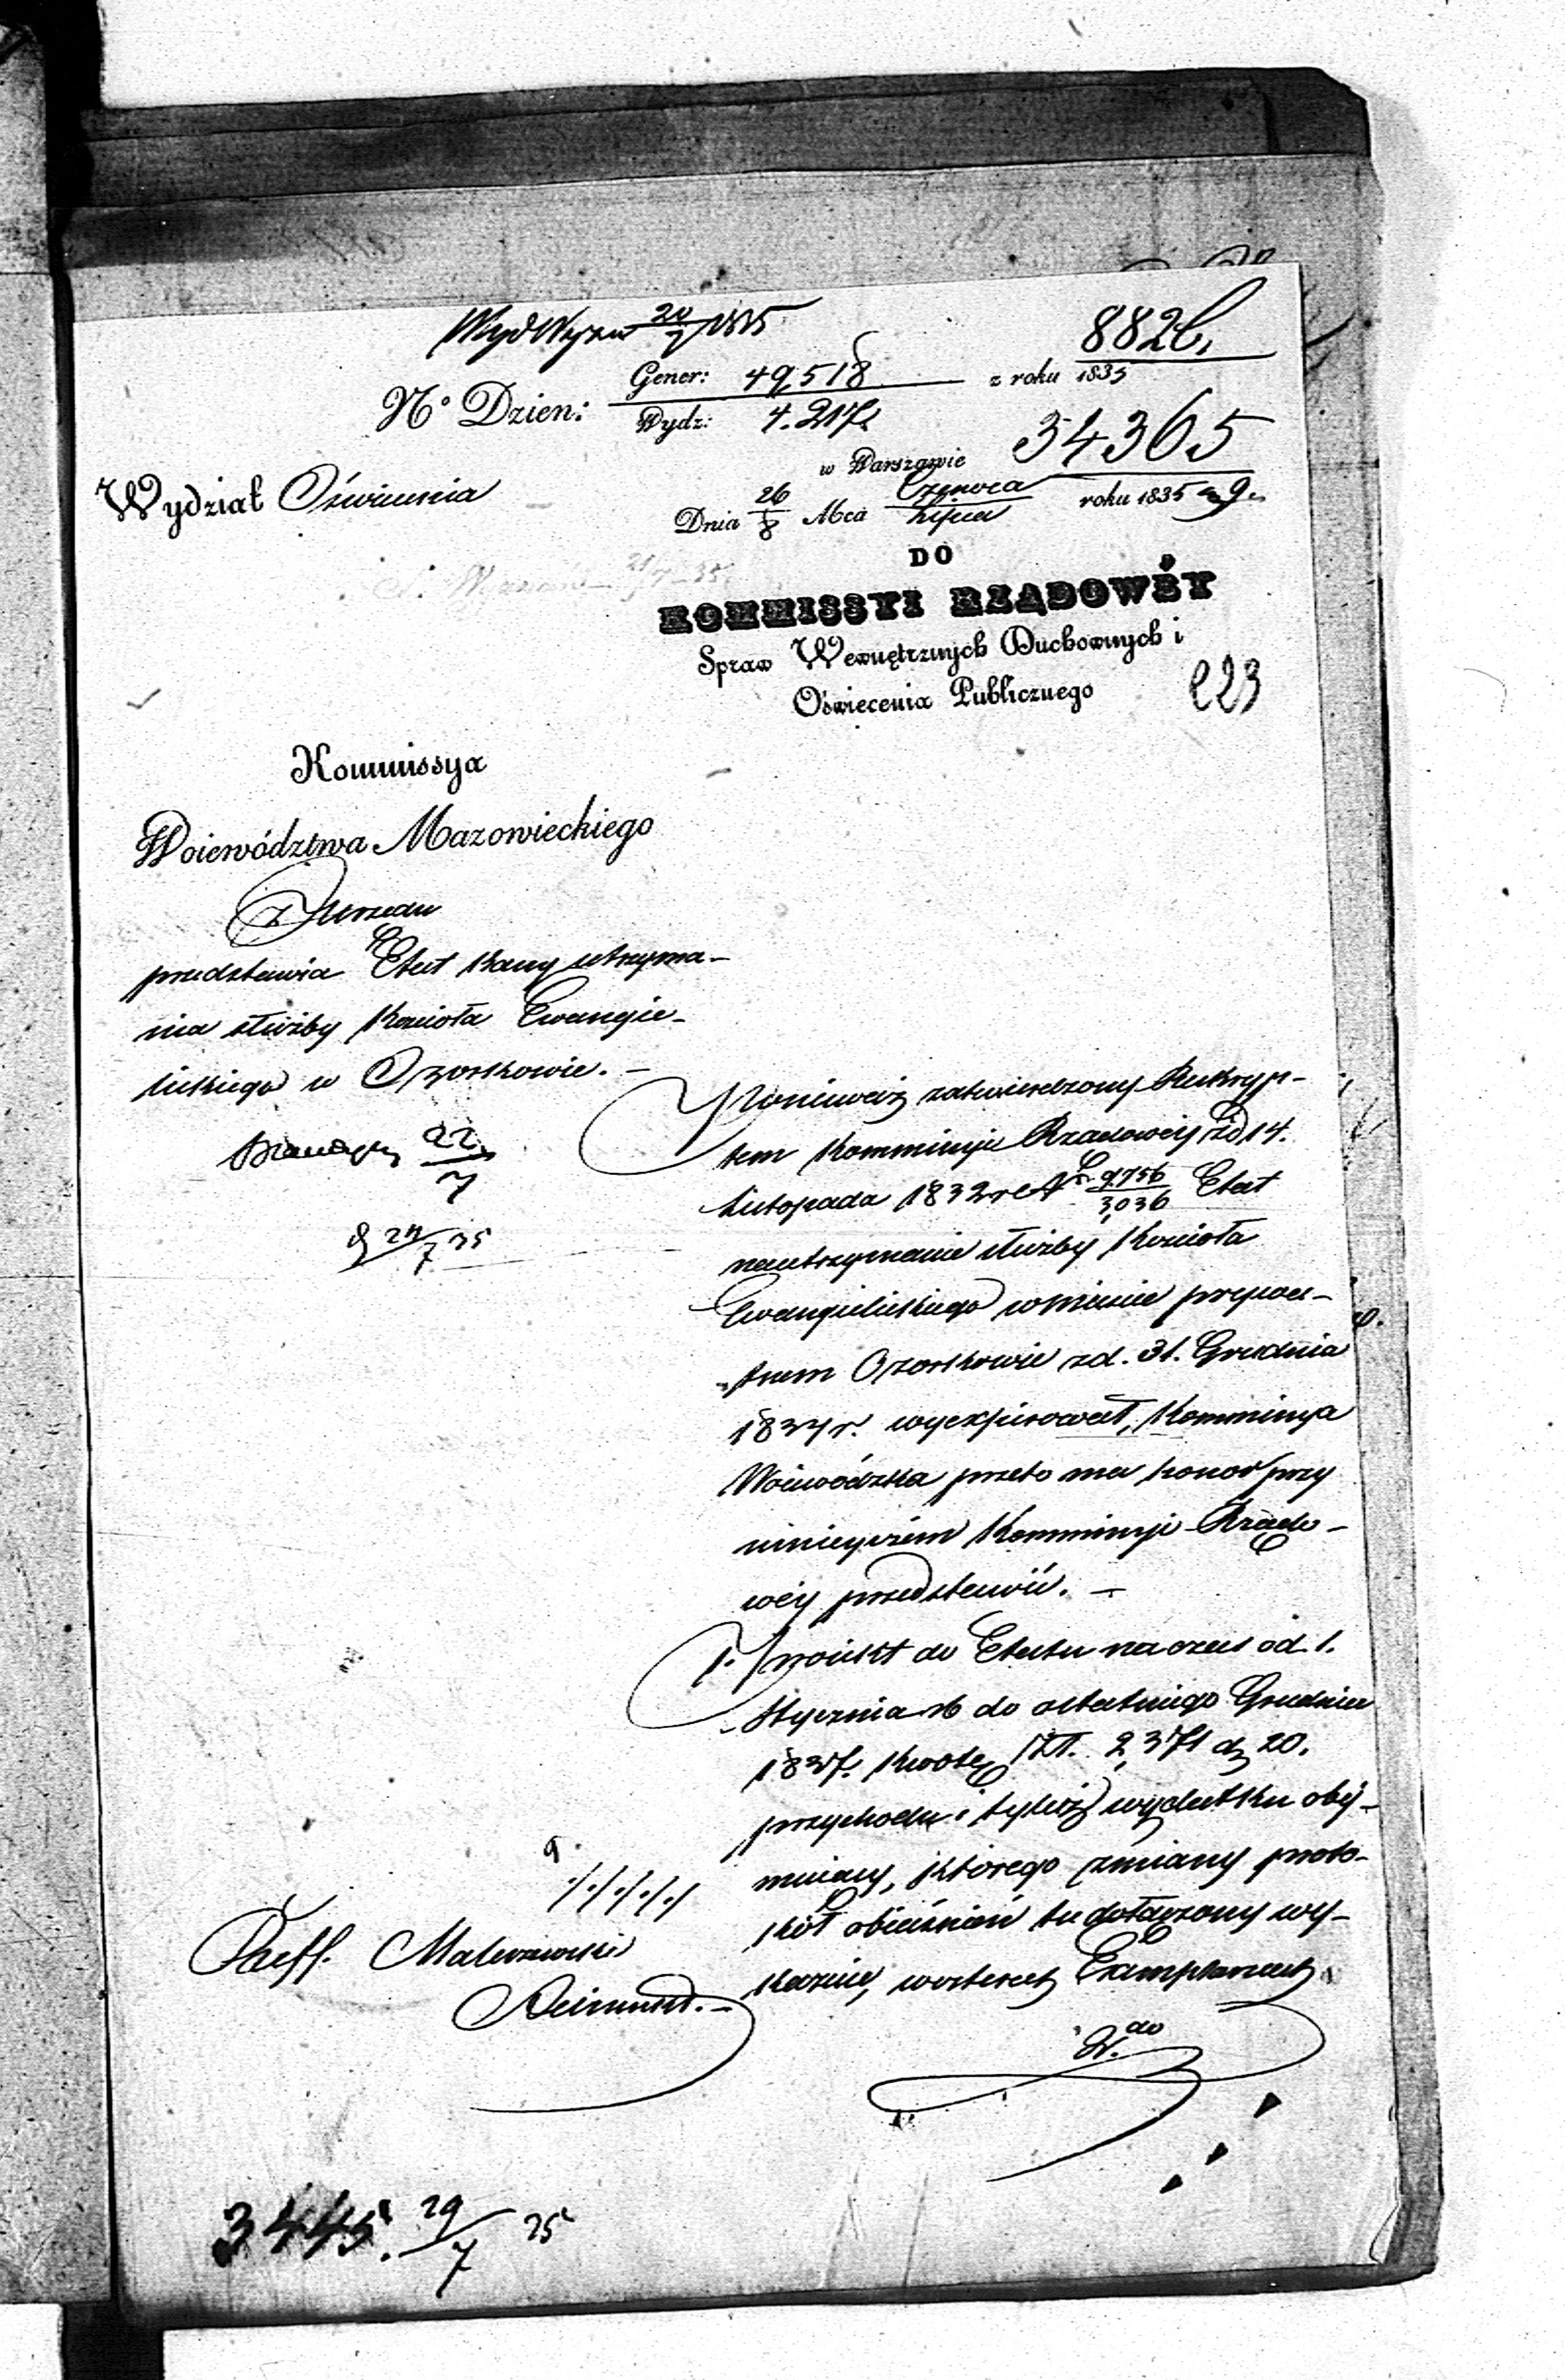 8826.
Gener: 49,518 z roku 1835
Nº Dzien:
Wydz: 7.217
34365
w Warszawie
Wydział Oświecenia
Dnia 26/8 Mca Czerwca/Lipca roku 1835
DO
KOMMISSYI RZĄDOWÉY
Spraw Wewnętrznych Duchownych i
Oświecenia Publicznego
223
Kommissya
Woiewództwa Mazowieckiego
Z Urzędu
przedstawia Etat Kassy utrzyma-
nia służby Kościoła Ewangie-
lickiego w Ozorkowie. -
22/7
24/7 35
Ponieważ zatwierdzony Reskryp-
tem Kommissyi Rządowéy z d 14.
Listopada 1832 r N 9756/3,036 Etat
na utrzymanie służby Kościoła
Ewangielickiego w mieście
Ozorkowie z d. 31. Grudnia
1834 r. wyexpirował, Kommissya
Woiewódzka przeto ma honor przy
ninieyszém Kommissyi Rządo-
wéy przedstawić. -
1. Proiekt do Etatu na czas od 1.
Stycznia rb do ostatniego Grudnia
1837. Kwotę Złt. 2,371 g 20.
przychodu i tyleż wydatku obéy-
muiący, którego zmiany proto-
kół obiaśnień tu dołączony wy-
każnie, w Exemplarzach
do
W.
Szeff. Maleszewski
Reimund. -
3445. 29/7 35